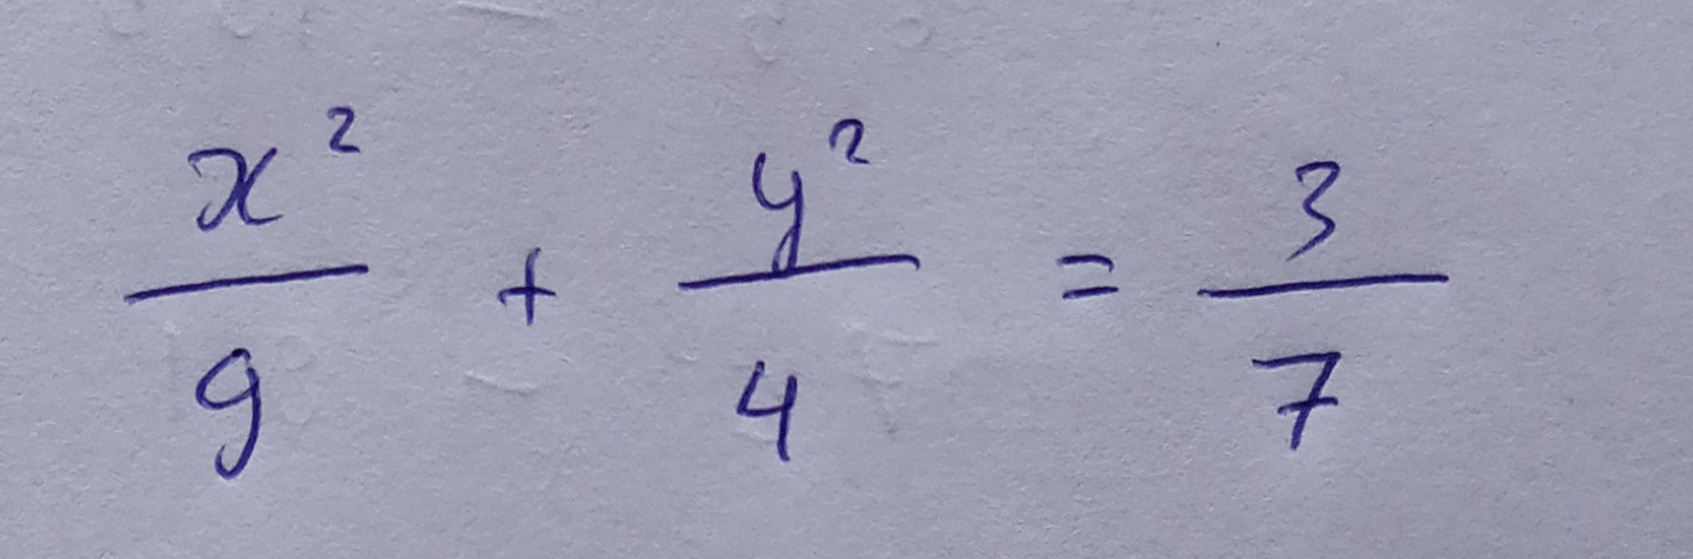 x²/9 + y²/4 = 3/7